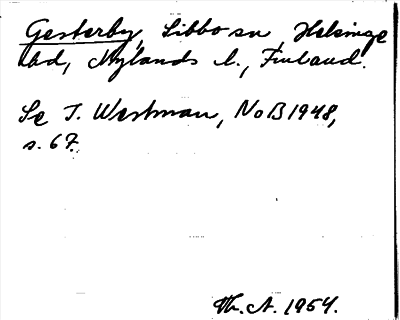 Gesterby, Sibbo sn, Helsinge
hd, Nylands l., Finland.
Se T. Westman, NoB 1948,
s. 67.
Th. A. 1954.